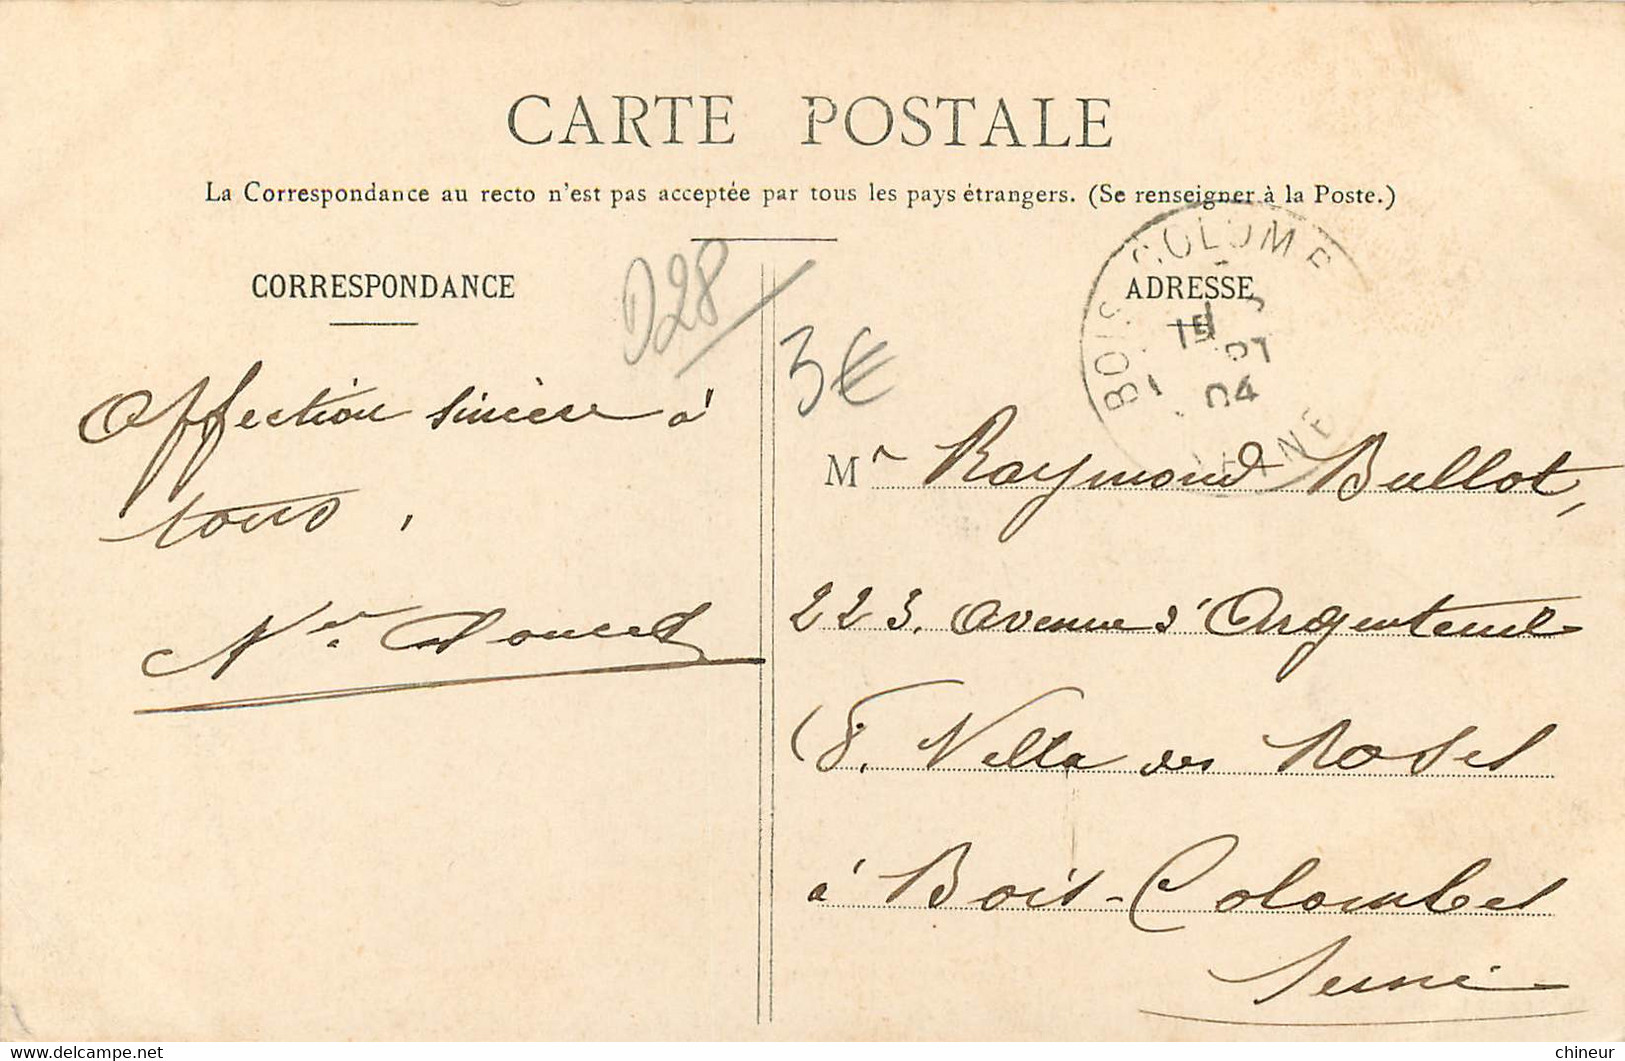 CARTE POSTALE
La Correspondance au recto n'est pas acceptée par tous les pays étrangers. (Se renseigner à la Poste.)
CORRESPONDANCE
D28
3€
Affection sincère à
tous,
Doucet
ADRESSE
BOIS COLOMBE
04
SEINE
Mr Raymond Bullot,
223, avenue d'Argenteuil
(8, Villa des Roses
à Bois-Colombes
Seine
chineur